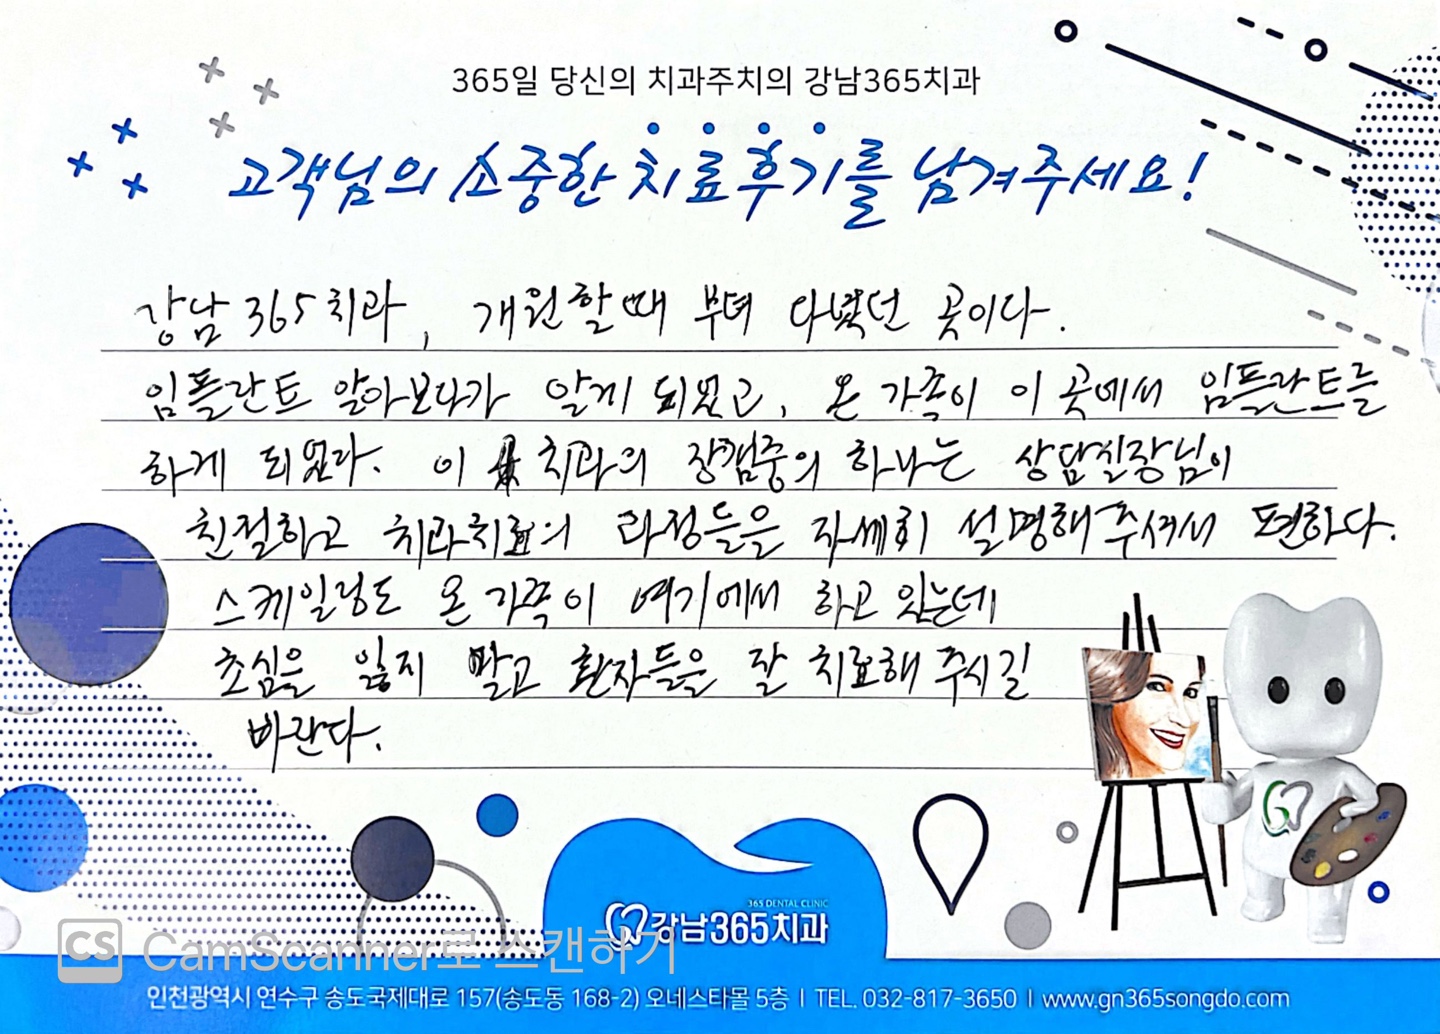 365일 당신의 치과주치의 강남365치과
고객님의 소중한 치료후기를 남겨주세요!
강남 365 치과, 개원할때 부터 다녔던 곳이다.
임플란트 알아보다가 알게 되었고, 온 가족이 이 곳에서 임플란트를
하게 되었다. 이 치과의 장점중의 하나는 상담실장님이
친절하고 치과치료의 과정들을 자세히 설명해 주셔서 편하다.
스케일링도 온 가족이 여기에서 하고 있는데
초심을 잃지 말고 환자들을 잘 치료해 주시길
바란다.
365 DENTAL CLINIC
강남365치과
CS CamScanner로 스캔하기
인천광역시 연수구 송도국제대로 157(송도동 168-2) 오네스타몰 5층 | TEL. 032-817-3650 | www.gn365songdo.com